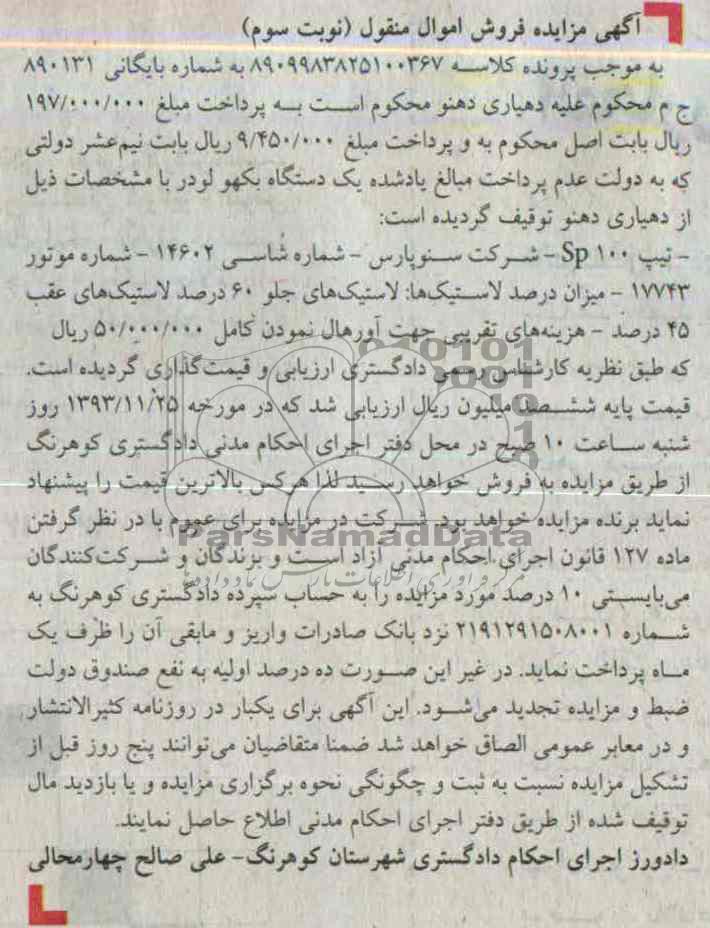 آگهی مزایده فروش اموال منقول (نوبت سوم)
به موجب پرونده کلاسه ۸۹۰۹۹۸۳۸۲۵۱۰۰۳۶۷ به شماره بایگانی ۸۹۰۱۳۱
ج م محکوم علیه دهیاری دهنو محکوم است به پرداخت مبلغ ۱۹۷/۰۰۰/۰۰۰
ریال بابت اصل محکوم به و پرداخت مبلغ ۹/۴۵۰/۰۰۰ ریال بابت نیم‌عشر دولتی
که به دولت عدم پرداخت مبالغ یادشده یک دستگاه بکهو لودر با مشخصات ذیل
از دهیاری دهنو توقیف گردیده است:
- تیپ Sp ۱۰۰ - شرکت سنوپارس - شماره شاسی ۱۴۶۰۲ - شماره موتور
۱۷۷۴۳ - میزان درصد لاستیک‌ها: لاستیک‌های جلو ۶۰ درصد لاستیک‌های عقب
۴۵ درصد - هزینه‌های تقریبی جهت آورهال نمودن کامل ۵۰/۰۰۰/۰۰۰ ریال
که طبق نظریه کارشناس رسمی دادگستری ارزیابی و قیمت‌گذاری گردیده است.
قیمت پایه ششصد میلیون ریال ارزیابی شد که در مورخه ۱۳۹۳/۱۱/۲۵ روز
شنبه ساعت ۱۰ صبح در محل دفتر اجرای احکام مدنی دادگستری کوهرنگ
از طریق مزایده به فروش خواهد رسید لذا هرکس بالاترین قیمت را پیشنهاد
نماید برنده مزایده خواهد بود. شرکت در مزایده برای عموم با در نظر گرفتن
ParsNamadData
ماده ۱۲۷ قانون اجرای احکام مدنی آزاد است و برندگان و شرکت‌کنندگان
می‌بایستی ۱۰ درصد مورد مزایده را به حساب سپرده دادگستری کوهرنگ به
شماره ۲۱۹۱۲۹۱۵۰۸۰۰۱ نزد بانک صادرات واریز و مابقی آن را ظرف یک
ماه پرداخت نماید. در غیر این صورت ده درصد اولیه به نفع صندوق دولت
ضبط و مزایده تجدید می‌شود. این آگهی برای یکبار در روزنامه کثیرالانتشار
و در معابر عمومی الصاق خواهد شد ضمنا متقاضیان می‌توانند پنج روز قبل از
تشکیل مزایده نسبت به ثبت و چگونگی نحوه برگزاری مزایده و یا بازدید مال
توقیف شده از طریق دفتر اجرای احکام مدنی اطلاع حاصل نمایند.
دادورز اجرای احکام دادگستری شهرستان کوهرنگ- علی صالح چهارمحالی